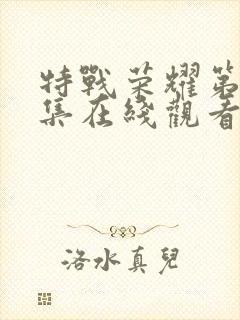 特戰荣耀第
集在綫觀看
洛水真兒